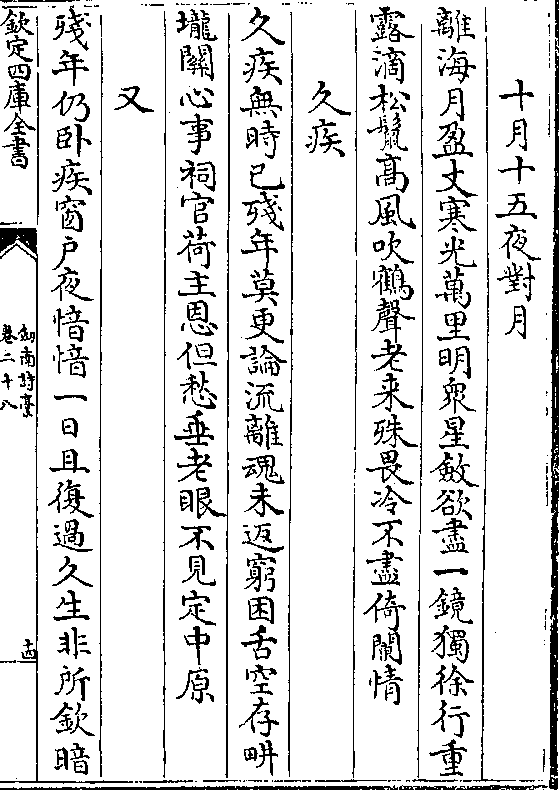 十月十五夜對月
離海月盈丈寒光萬里明衆星斂欲盡一鏡獨徐行重
露滴松鬣高風吹鶴聲老来殊畏冷不盡倚闌情
久疾
久疾無時已殘年莫更論流離魂未返窮困舌空存畊
壠關心事祠官荷主恩但愁垂老眼不見定中原
又
殘年仍卧疾窗户夜愔愔一日且復過久生非所欽暗
欽定四庫全書
劍南詩藁
卷二十八
十四